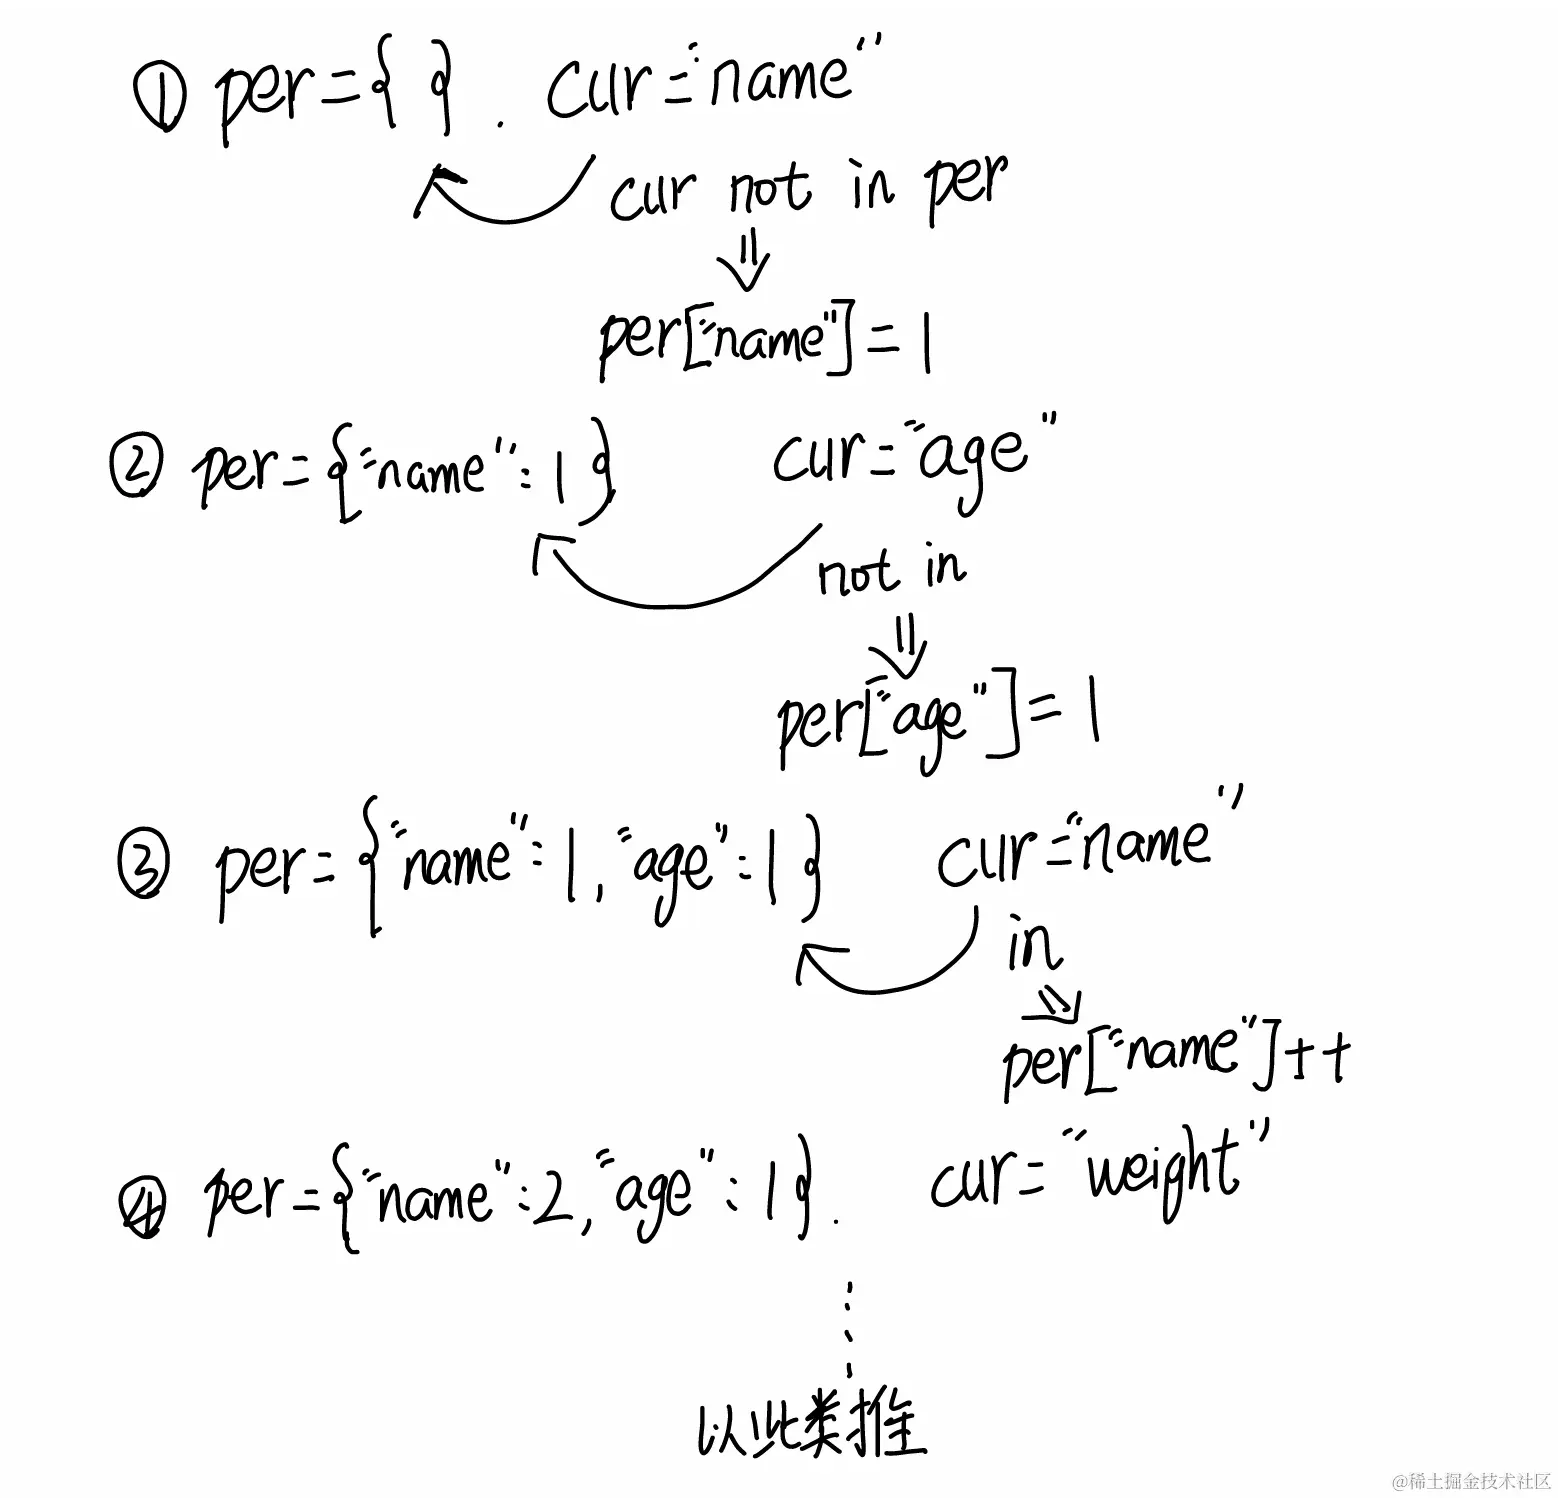 ① per={ }. cur="name"
cur not in per
⇓
per["name"]=1
② per={"name":1} cur="age"
not in
⇓
per["age"]=1
③ per={"name":1,"age":1} cur="name"
in
⇓
per["name"]++
④ per={"name":2,"age":1}. cur="weight"
以此类推
@稀土掘金技术社区